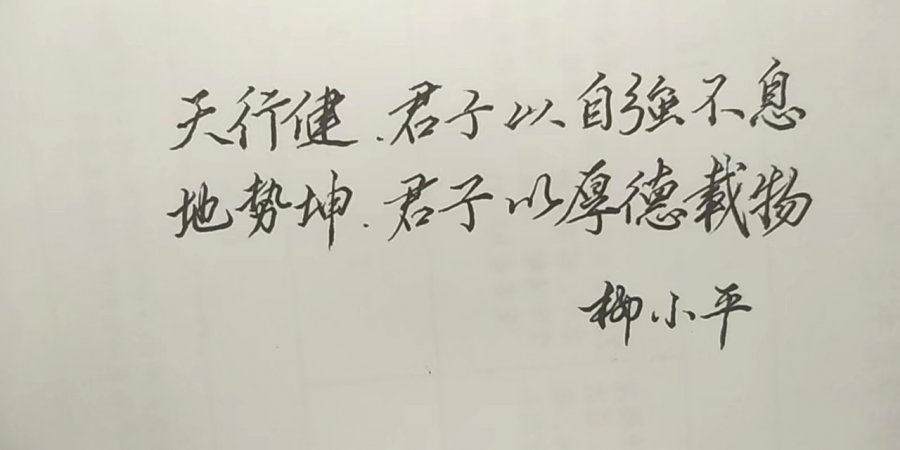 天行健.君子以自強不息
地势坤.君子以厚德載物
柳小平